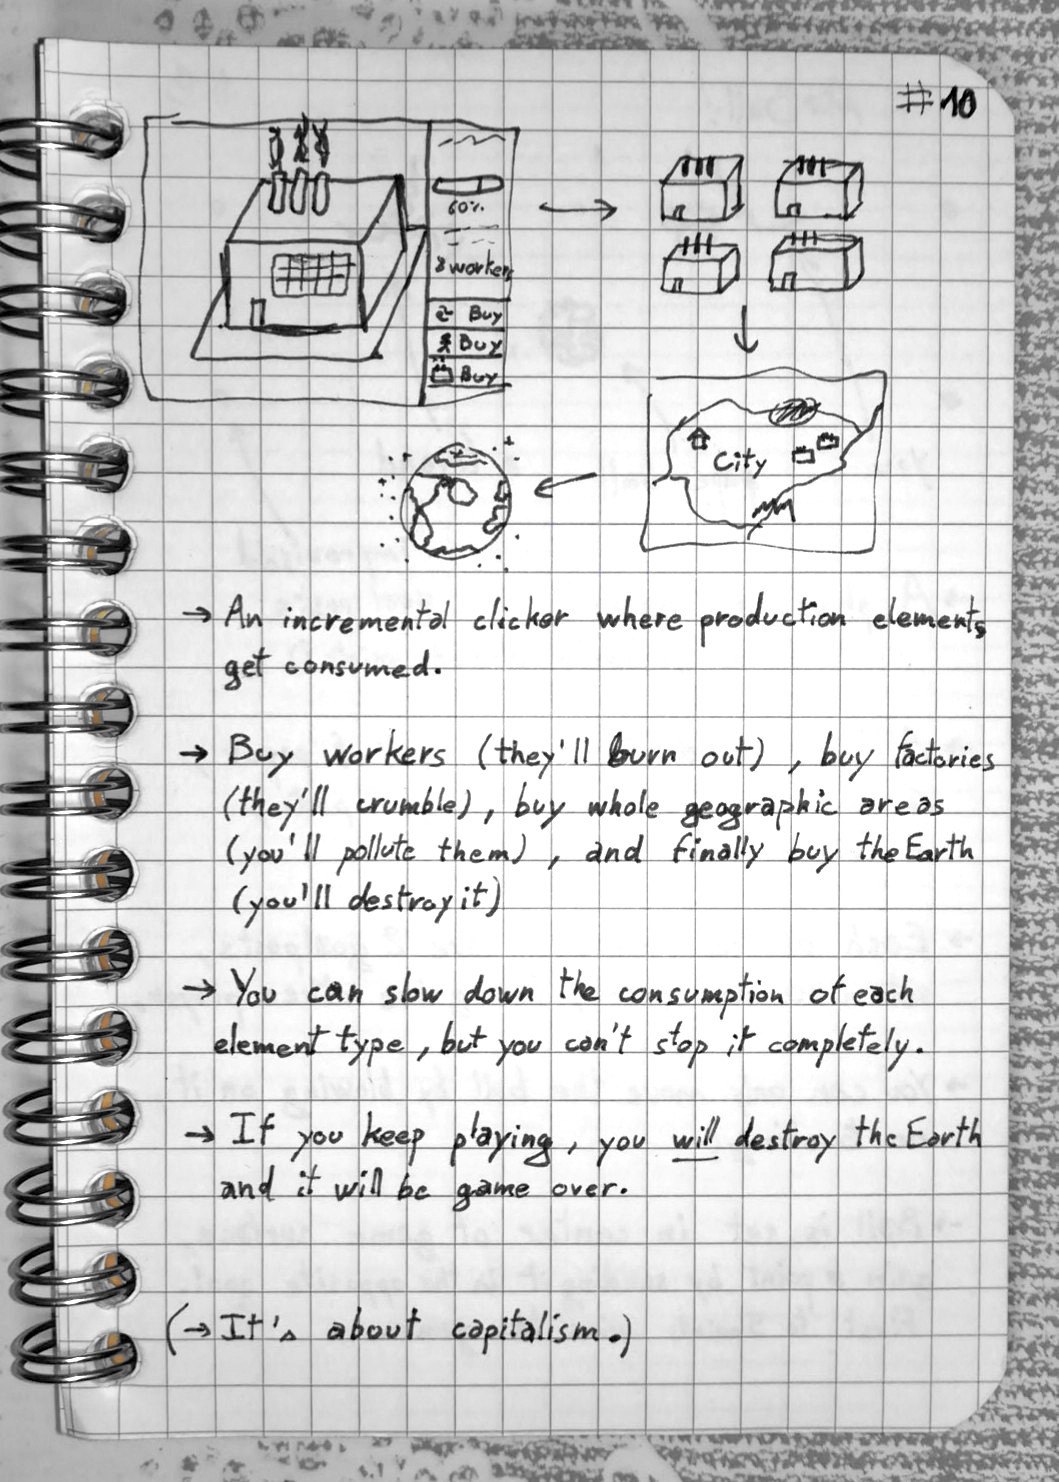 #10
60%
8 workers
Buy
Buy
Buy
City
→ An incremental clicker where production elements
get consumed.
→ Buy workers (they'll burn out), buy factories
(they'll crumble), buy whole geographic areas
(you'll pollute them), and finally buy the Earth
(you'll destroy it)
→ You can slow down the consumption of each
element type, but you can't stop it completely.
→ If you keep playing, you will destroy the Earth
and it will be game over.
(→ It's about capitalism.)